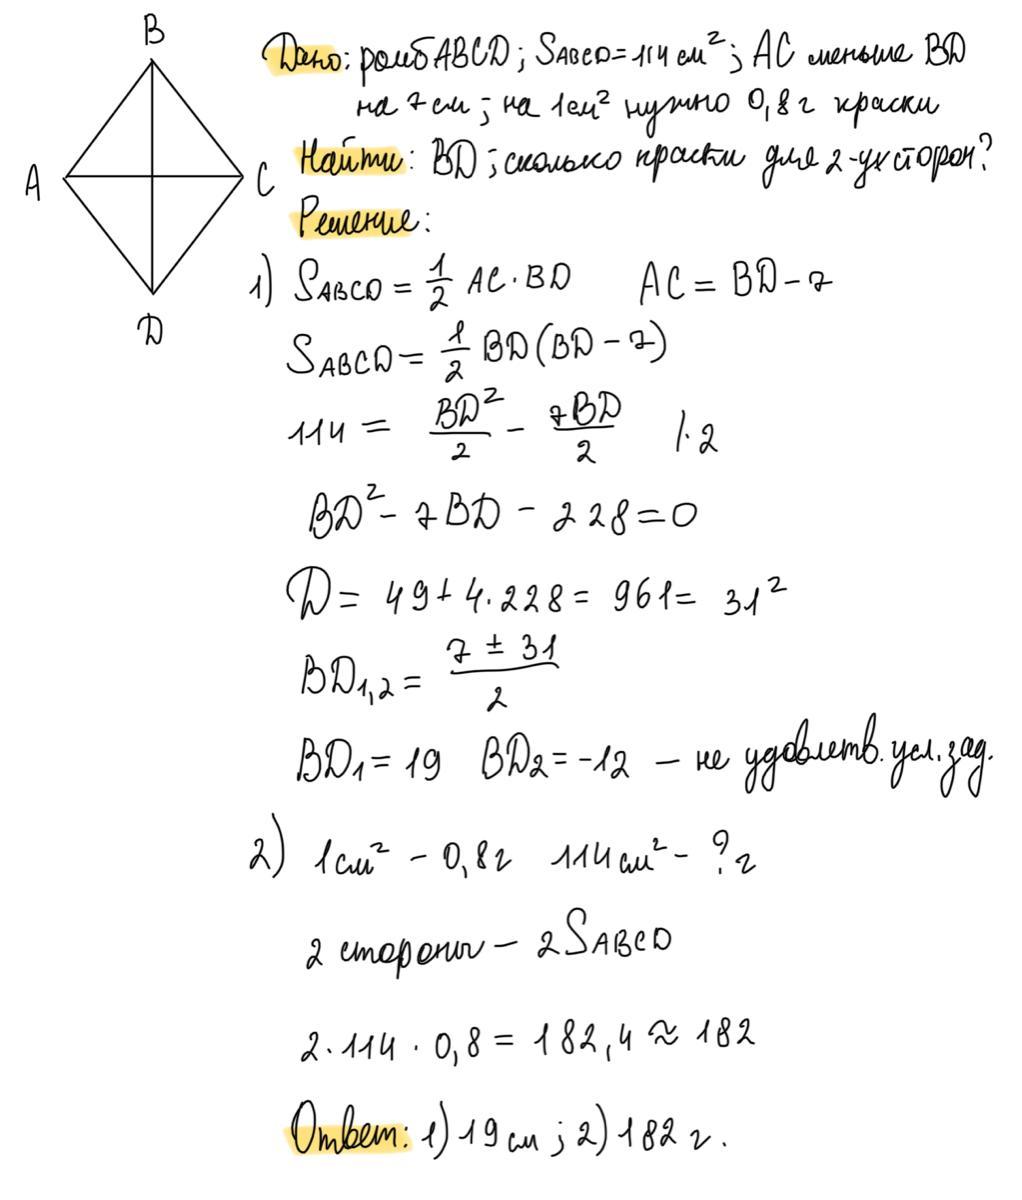 B
A
C
D
Дано: ромб ABCD; SABCD=114 см²; AC меньше BD
на 7 см; на 1см² нужно 0,8 г краски
Найти: BD; сколько краски для 2-ух сторон?
Решение:
1) SABCD = 1/2 AC·BD AC = BD-7
SABCD = 1/2 BD(BD-7)
114 = BD²/2 - 7BD/2 |·2
BD² - 7BD - 228=0
D = 49+4·228= 961= 31²
BD1,2= (7 ± 31)/2
BD1= 19 BD2= -12 – не удовлетв. усл. зад.
2) 1см² - 0,8г 114см² - ? г
2 стороны – 2SABCD
2·114·0,8= 182,4 ≈ 182
Ответ: 1) 19 см; 2) 182 г.